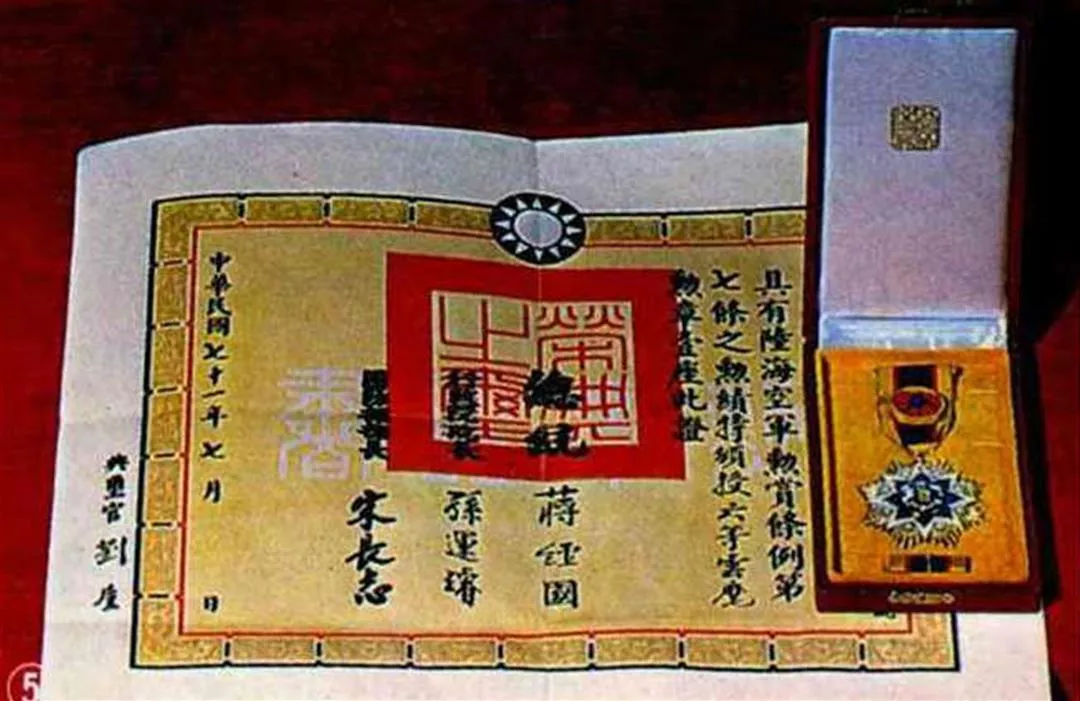 具有陸海空軍勳賞條例第
七條之勳績特頒授六等雲麾
勳章壹座此證
榮典之璽
總統 蔣經國
行政院長 孫運璿
部長 宋長志
中華民國七十一年七月 日
典璽官 劉垕
5